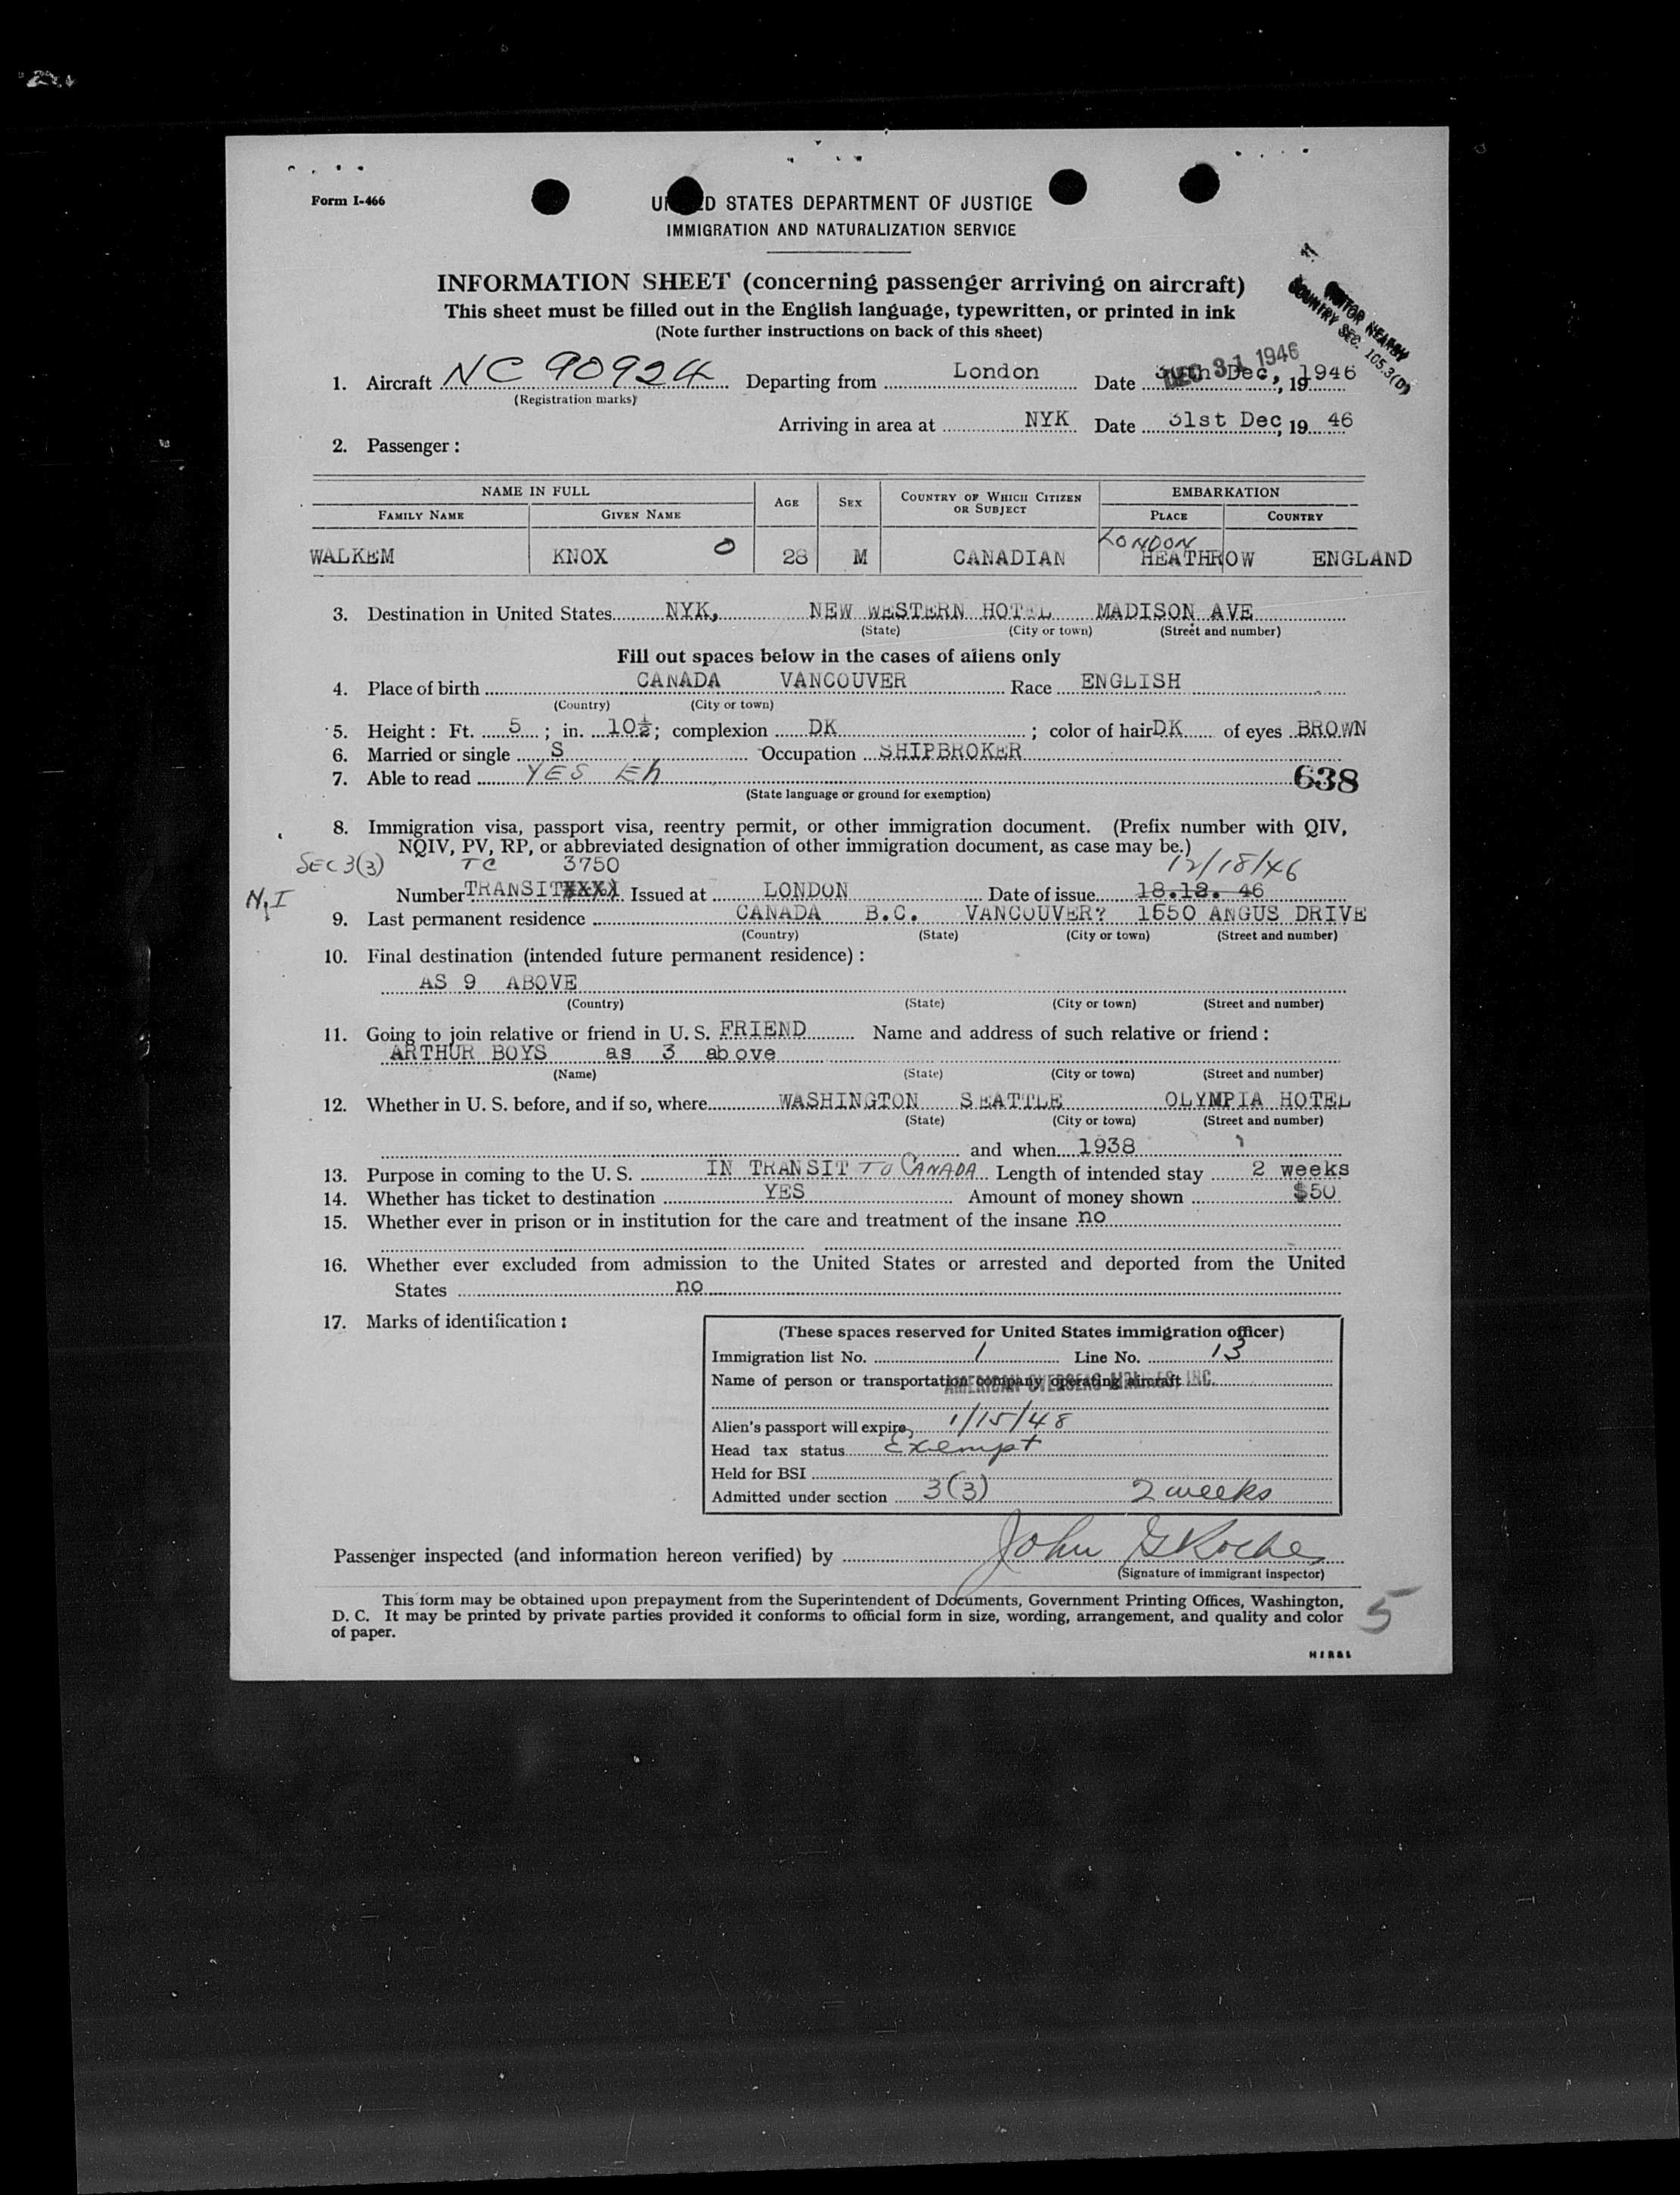 Form I-466
UNITED STATES DEPARTMENT OF JUSTICE
IMMIGRATION AND NATURALIZATION SERVICE
INFORMATION SHEET (concerning passenger arriving on aircraft)
This sheet must be filled out in the English language, typewritten, or printed in ink
(Note further instructions on back of this sheet)
VISITOR NEARBY
COUNTRY SEC. 105.3(D)
DEC 31 1946
1. Aircraft NC 90924 Departing from London Date 30th Dec, 1946
(Registration marks)
Arriving in area at NYK Date 31st Dec, 19 46
2. Passenger:
NAME IN FULL AGE SEX COUNTRY OF WHICH CITIZEN OR SUBJECT EMBARKATION
FAMILY NAME GIVEN NAME PLACE COUNTRY
LONDON
WALKEM KNOX 0 28 M CANADIAN HEATHROW ENGLAND
3. Destination in United States NYK, NEW WESTERN HOTEL MADISON AVE
(State) (City or town) (Street and number)
Fill out spaces below in the cases of aliens only
4. Place of birth CANADA VANCOUVER Race ENGLISH
(Country) (City or town)
5. Height: Ft. 5; in. 10½; complexion DK; color of hair DK of eyes BROWN
6. Married or single S Occupation SHIPBROKER
7. Able to read YES Eh
638
(State language or ground for exemption)
8. Immigration visa, passport visa, reentry permit, or other immigration document. (Prefix number with QIV,
NQIV, PV, RP, or abbreviated designation of other immigration document, as case may be.)
SEC 3(3) TC 3750 12/18/46
N.I Number TRANSIT Issued at LONDON Date of issue 18.12. 46
9. Last permanent residence CANADA B.C. VANCOUVER? 1550 ANGUS DRIVE
(Country) (State) (City or town) (Street and number)
10. Final destination (intended future permanent residence):
AS 9 ABOVE
(Country) (State) (City or town) (Street and number)
11. Going to join relative or friend in U. S. FRIEND Name and address of such relative or friend:
ARTHUR BOYS as 3 above
(Name) (State) (City or town) (Street and number)
12. Whether in U. S. before, and if so, where WASHINGTON SEATTLE OLYMPIA HOTEL
(State) (City or town) (Street and number)
and when 1938
13. Purpose in coming to the U. S. IN TRANSIT TO CANADA Length of intended stay 2 weeks
14. Whether has ticket to destination YES Amount of money shown $50
15. Whether ever in prison or in institution for the care and treatment of the insane no
16. Whether ever excluded from admission to the United States or arrested and deported from the United
States no
17. Marks of identification:
(These spaces reserved for United States immigration officer)
Immigration list No. 1 Line No. 13
Name of person or transportation company operating aircraft AMERICAN OVERSEAS AIRLINES INC.
Alien's passport will expire 1/15/48
Head tax status Exempt
Held for BSI
Admitted under section 3(3) 2 weeks
Passenger inspected (and information hereon verified) by John G Roche
(Signature of immigrant inspector)
This form may be obtained upon prepayment from the Superintendent of Documents, Government Printing Offices, Washington,
D. C. It may be printed by private parties provided it conforms to official form in size, wording, arrangement, and quality and color
of paper.
5